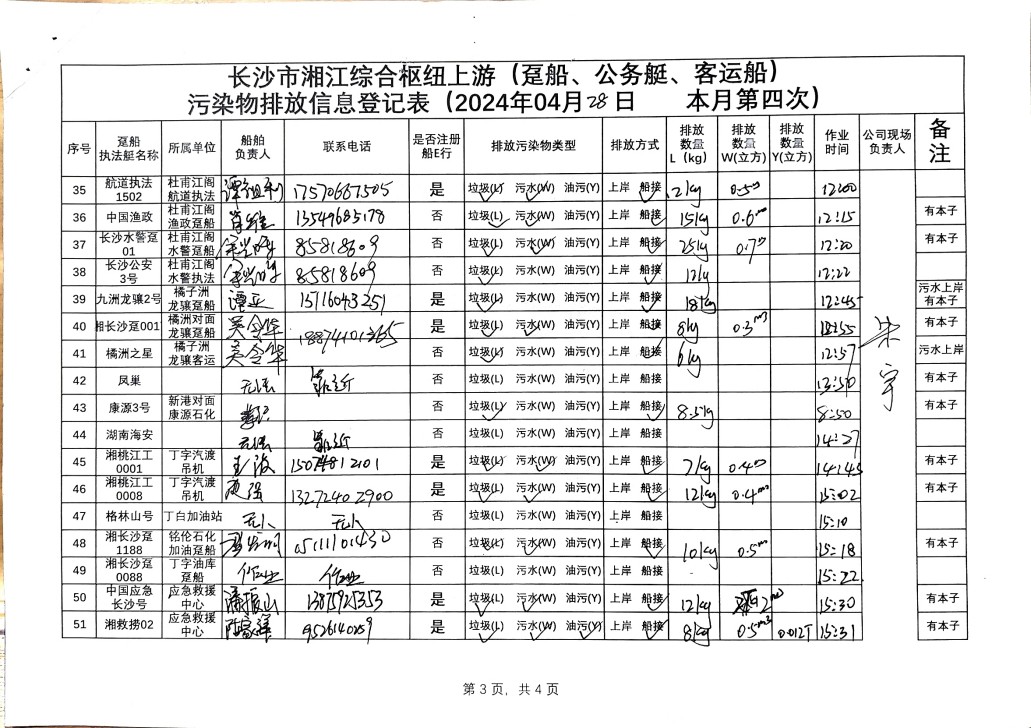 长沙市湘江综合枢纽上游（趸船、公务艇、客运船）
污染物排放信息登记表（2024年04月28日 本月第四次）
序号 趸船执法艇名称 所属单位 船舶负责人 联系电话 是否注册船E行 排放污染物类型 排放方式 排放数量L（kg） 排放数量W(立方) 排放数量Y(立方) 作业时间 公司现场负责人 备注
35 航道执法1502 杜甫江阁航道执法 17570667505 是 垃圾(L) 污水(W) 油污(Y) 上岸 船接 2kg 12:00
36 中国渔政 杜甫江阁渔政趸船 13549685178 否 垃圾(L) 污水(W) 油污(Y) 上岸 船接 15kg 12:15 有本子
37 长沙水警趸01 杜甫江阁水警趸船 85818609 否 垃圾(L) 污水(W) 油污(Y) 上岸 船接 25kg 12:20 有本子
38 长沙公安3号 杜甫江阁水警执法 85818609 否 垃圾(L) 污水(W) 油污(Y) 上岸 船接 12kg 12:22
39 九洲龙骧2号 橘子洲龙骧趸船 谭立 15116043251 是 垃圾(L) 污水(W) 油污(Y) 上岸 船接 18kg 12:45 污水上岸有本子
40 湘长沙趸001 橘洲对面龙骧趸船 吴令华 是 垃圾(L) 污水(W) 油污(Y) 上岸 船接 8kg 0.3m³ 12:55 有本子
41 橘洲之星 橘子洲龙骧客运 吴令华 否 垃圾(L) 污水(W) 油污(Y) 上岸 船接 6kg 12:57 污水上岸
42 凤巢 无法 靠近 否 垃圾(L) 污水(W) 油污(Y) 上岸 船接 13:50 有本子
43 康源3号 新港对面康源石化 否 垃圾(L) 污水(W) 油污(Y) 上岸 船接 8.5kg 8:50 有本子
44 湖南海安 无法 靠近 否 垃圾(L) 污水(W) 油污(Y) 上岸 船接 14:27
45 湘桃江工0001 丁字汽渡吊机 15074812101 是 垃圾(L) 污水(W) 油污(Y) 上岸 船接 7kg 14:45 有本子
46 湘桃江工0008 丁字汽渡吊机 13272402900 是 垃圾(L) 污水(W) 油污(Y) 上岸 船接 12kg 0.4m³ 15:02 有本子
47 格林山号 丁白加油站 无人 无人 否 垃圾(L) 污水(W) 油污(Y) 上岸 船接 15:10
48 湘长沙趸1188 铭伦石化加油趸船 否 垃圾(L) 污水(W) 油污(Y) 上岸 船接 10kg 0.5m³ 15:18 有本子
49 湘长沙趸0088 丁字油库趸船 作业 作业 否 垃圾(L) 污水(W) 油污(Y) 上岸 船接 15:22
50 中国应急长沙号 应急救援中心 13875925353 是 垃圾(L) 污水(W) 油污(Y) 上岸 船接 12kg 2m³ 15:30 有本子
51 湘救捞02 应急救援中心 是 垃圾(L) 污水(W) 油污(Y) 上岸 船接 8kg 0.5m³ 0.012T 15:31 有本子
第 3 页，共 4 页